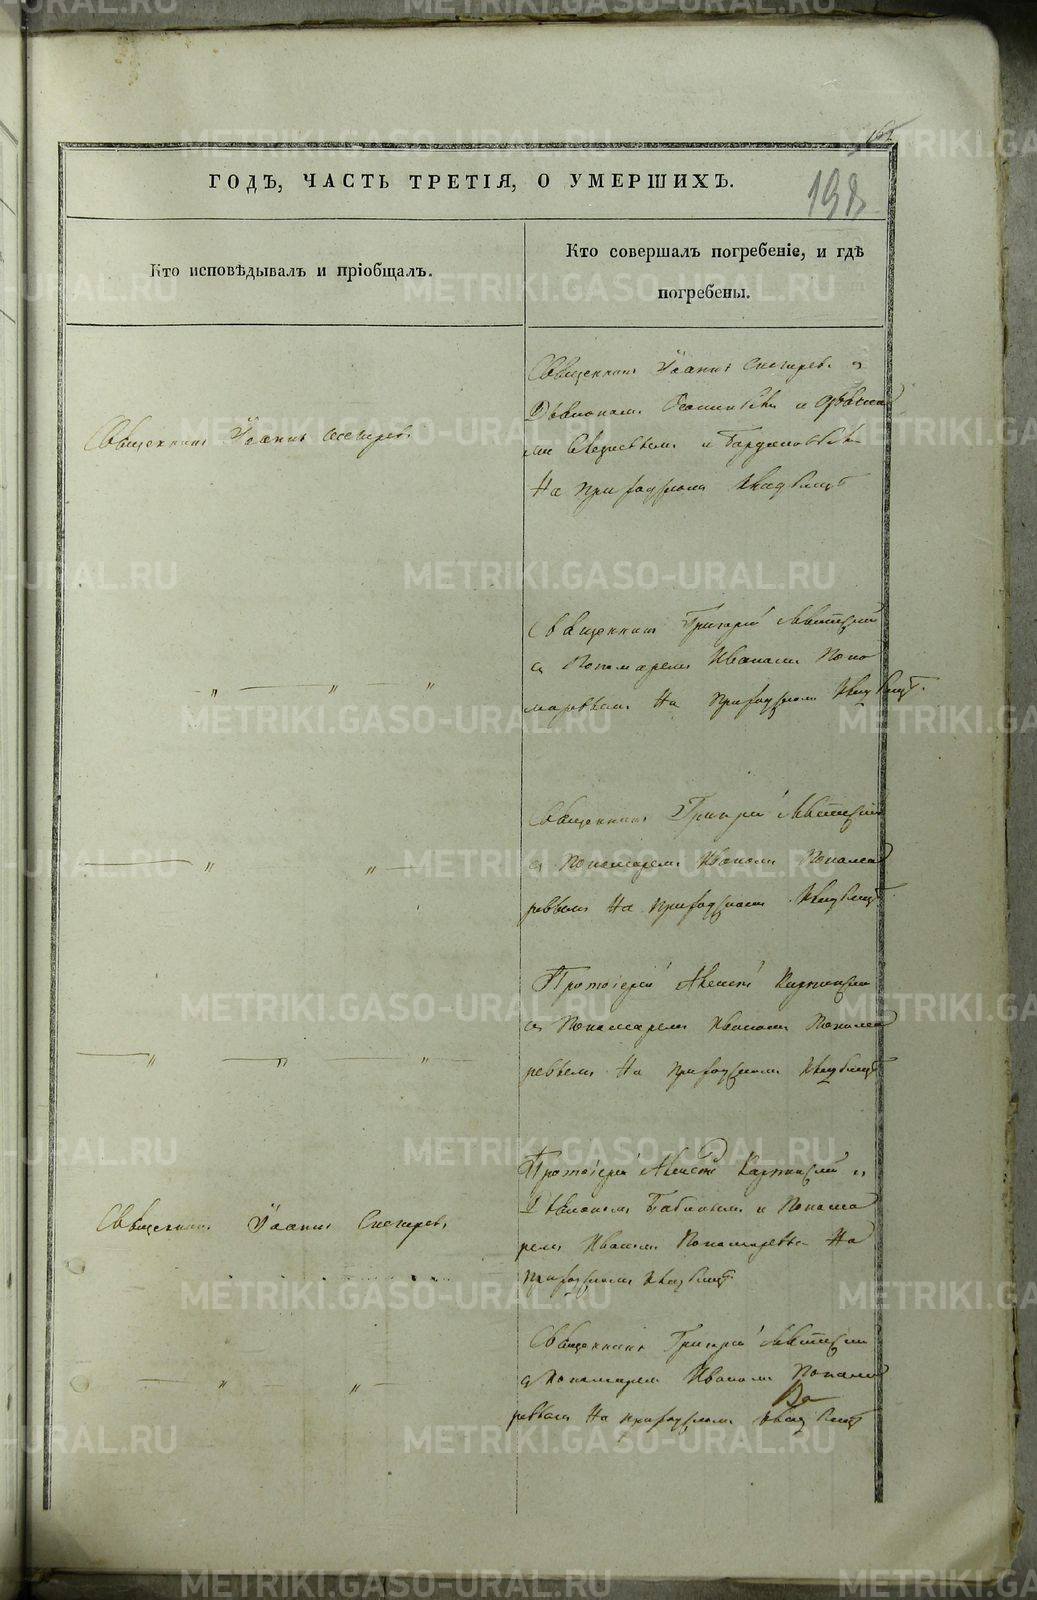 162
198
ГОДЪ, ЧАСТЬ ТРЕТІЯ, О УМЕРШИХЪ.
Кто исповѣдывалъ и пріобщалъ.
Кто совершалъ погребеніе, и гдѣ
погребены.
Священникъ Іоаннъ Снегирев.
Священникъ Іоаннъ Снегирев с
Діакономъ и
и
На приходскомъ кладбищѣ
" " "
Священникъ Григорій
съ Пономаремъ Иваномъ Поно
маревымъ На приходскомъ кладбищѣ.
" "
Священникъ Григорій
съ Пономаремъ Иваномъ Понома
ревымъ На приходскомъ кладбищѣ
" " "
Протоіерей Алексій Карпинскій
съ Пономаремъ Иваномъ Понома
ревымъ На приходскомъ кладбищѣ
Священникъ Іоаннъ Снегирев
Протоіерей Алексій Карпинскій съ
Діакономъ Бабинымъ и Понома
ремъ Иваномъ Пономаревы На
приходскомъ кладбищѣ
" "
Священникъ Григорій
съ Пономаремъ Иваномъ Понома
ревымъ На приходскомъ кладбищѣ
METRIKI.GASO-URAL.RU